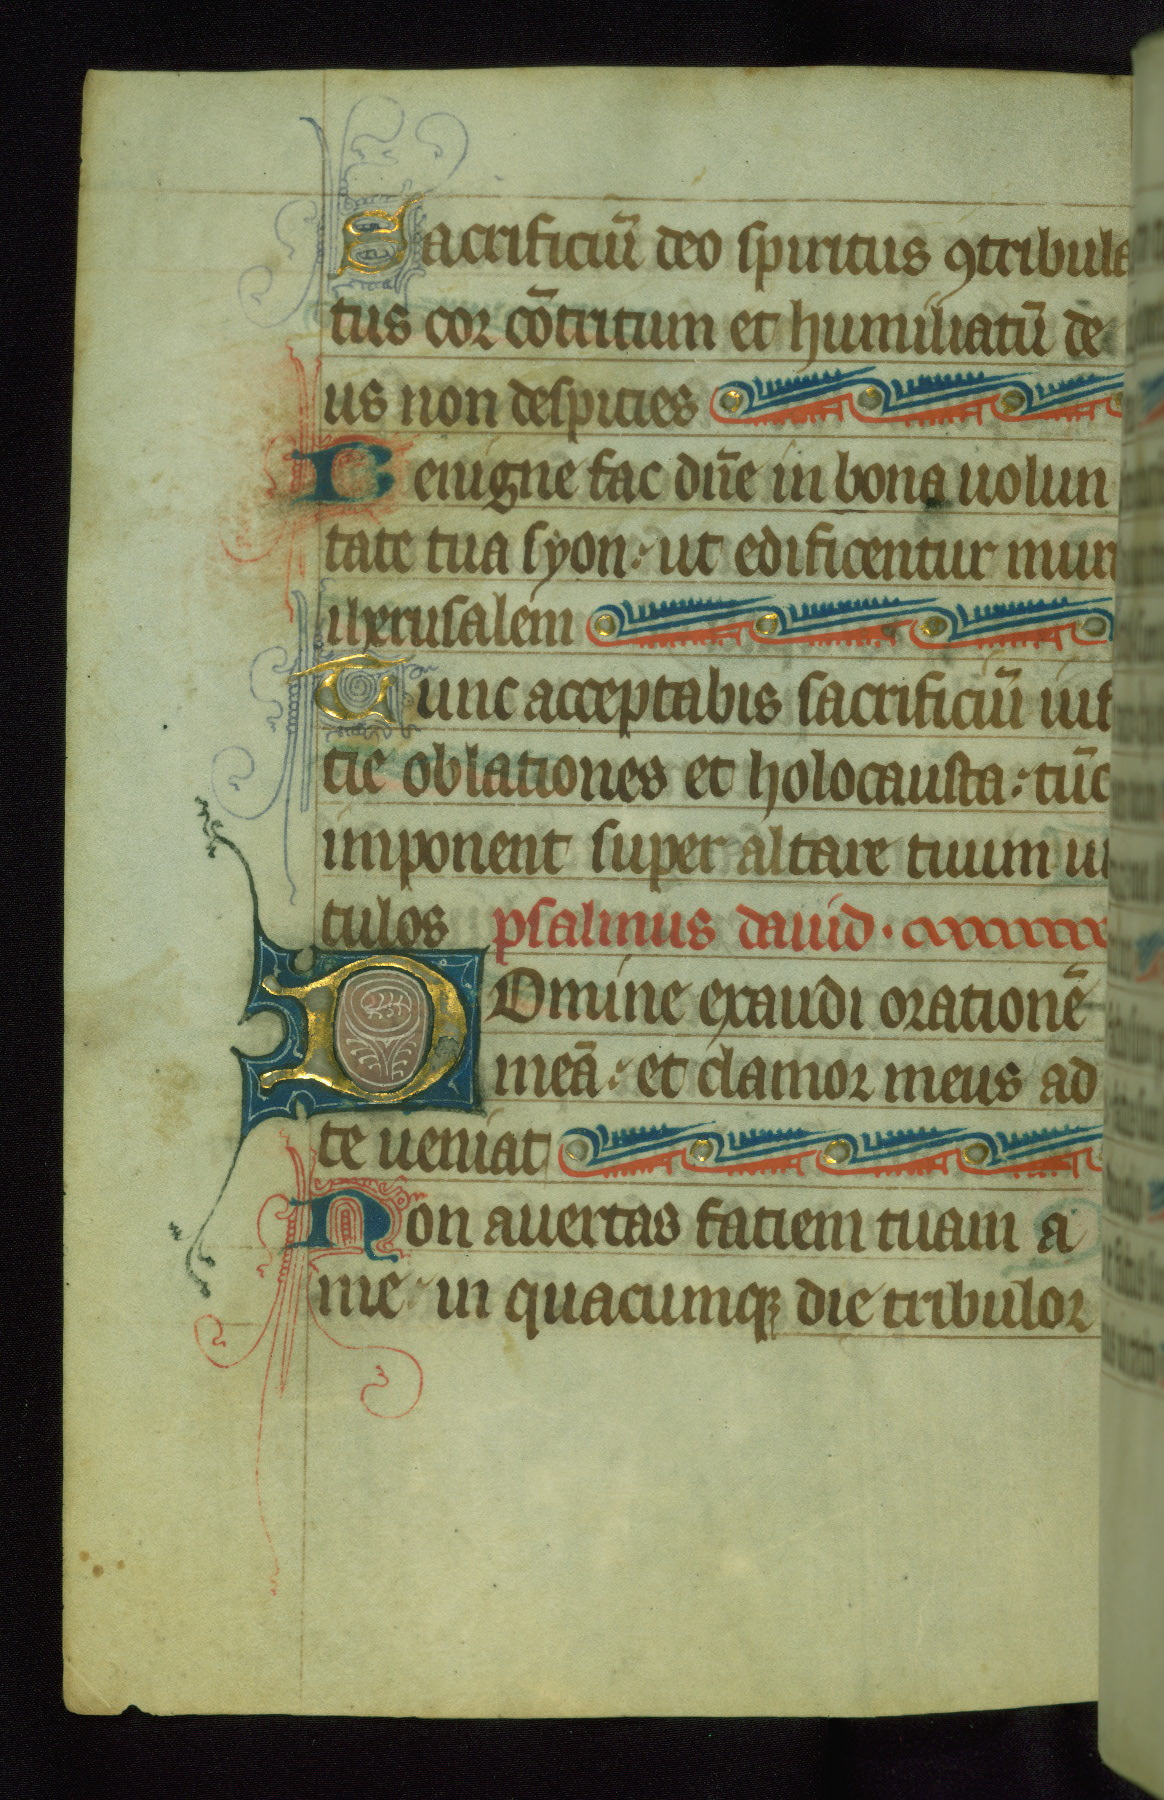 Sacrificiū deo spiritus ꝯtribula
tus cor cōtritum et humiliatū de
us non despicies
Benigne fac dn̄e in bona uolun
tate tua syon: ut edificentur mur
iherusalem
Tunc acceptabis sacrificiū iust
cie oblationes et holocausta: tūc
imponent super altare tuum ui
tulos psalmus dauid.
DOmine exaudi orationē
meā: et clamor meus ad
te ueniat
Non auertas faciem tuam a
me: in quacumqꝫ die tribulor